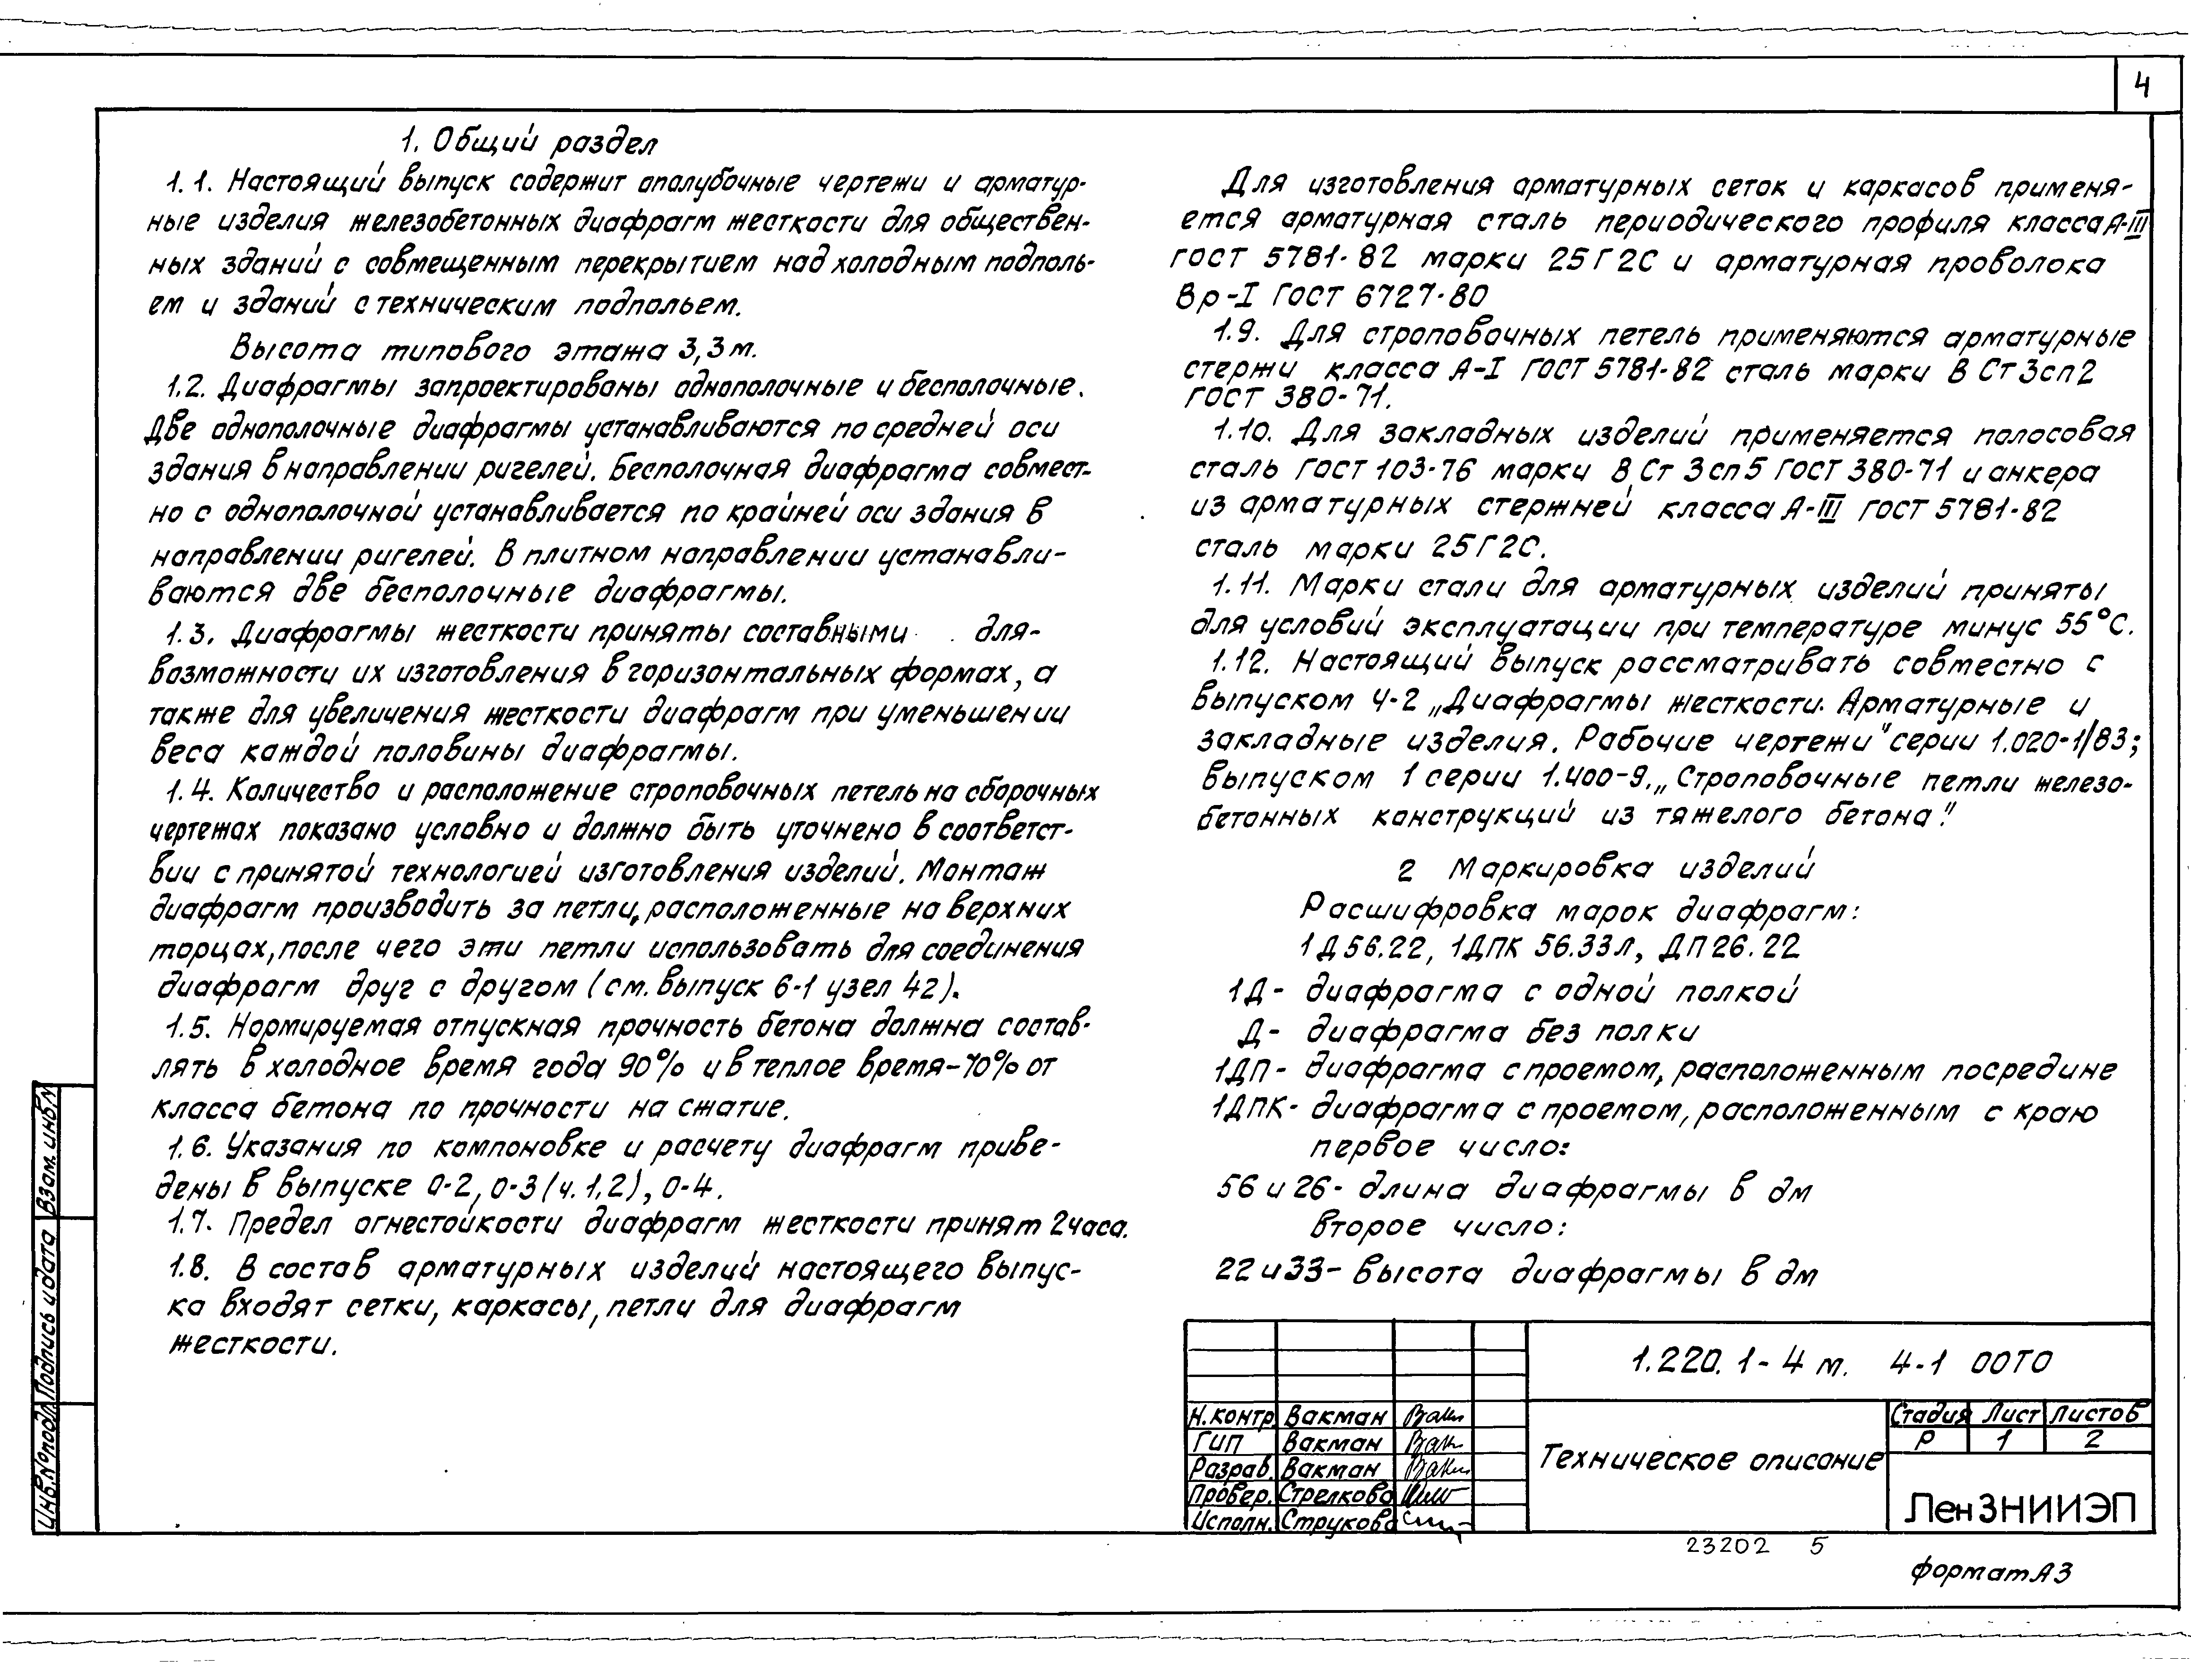 4
1. Общий раздел
1.1. Настоящий выпуск содержит опалубочные чертежи и арматур-
ные изделия железобетонных диафрагм жесткости для обществен-
ных зданий с совмещенным перекрытием над холодным подполь-
ем и зданий с техническим подпольем.
Высота типового этажа 3,3м.
1.2. Диафрагмы запроектированы однополочные и бесполочные.
Две однополочные диафрагмы устанавливаются по средней оси
здания в направлении ригелей. Бесполочная диафрагма совмест-
но с однополочной устанавливается по крайней оси здания в
направлении ригелей. В плитном направлении устанавли-
ваются две бесполочные диафрагмы.
1.3. Диафрагмы жесткости приняты составными для-
возможности их изготовления в горизонтальных формах, а
также для увеличения жесткости диафрагм при уменьшении
веса каждой половины диафрагмы.
1.4. Количество и расположение строповочных петель на сборочных
чертежах показано условно и должно быть уточнено в соответст-
вии с принятой технологией изготовления изделий. Монтаж
диафрагм производить за петли, расположенные на верхних
торцах, после чего эти петли использовать для соединения
диафрагм друг с другом (см. выпуск 6-1 узел 42).
1.5. Нормируемая отпускная прочность бетона должна состав-
лять в холодное время года 90% и в теплое время-70% от
класса бетона по прочности на сжатие.
1.6. Указания по компоновке и расчету диафрагм приве-
дены в выпуске 0-2, 0-3 (ч. 1,2), 0-4.
1.7. Предел огнестойкости диафрагм жесткости принят 2часа.
1.8. В состав арматурных изделий настоящего выпус-
ка входят сетки, каркасы, петли для диафрагм
жесткости.
Для изготовления арматурных сеток и каркасов применя-
ется арматурная сталь периодического профиля класса А-III
ГОСТ 5781-82 марки 25Г2С и арматурная проволока
Вр-I ГОСТ 6727-80
1.9. Для строповочных петель применяются арматурные
стержи класса А-I ГОСТ 5781-82 сталь марки В Ст 3сп2
ГОСТ 380-71.
1.10. Для закладных изделий применяется полосовая
сталь ГОСТ 103-76 марки В Ст 3сп5 ГОСТ 380-71 и анкера
из арматурных стержней класса А-III ГОСТ 5781-82
сталь марки 25Г2С.
1.11. Марки стали для арматурных изделий приняты
для условий эксплуатации при температуре минус 55°С.
1.12. Настоящий выпуск рассматривать совместно с
выпуском 4-2 „Диафрагмы жесткости. Арматурные и
закладные изделия. Рабочие чертежи" серии 1.020-1/83;
выпуском 1 серии 1.400-9. „Строповочные петли железо-
бетонных конструкций из тяжелого бетона."
2 Маркировка изделий
Расшифровка марок диафрагм:
1Д56.22, 1ДПК 56.33л, ДП26.22
1Д- диафрагма с одной полкой
Д- диафрагма без полки
1ДП- диафрагма с проемом, расположенным посредине
1ДПК- диафрагма с проемом, расположенным с краю
первое число:
56 и 26- длина диафрагмы в дм
второе число:
22 и 33- высота диафрагмы в дм
1.220.1-4м. 4-1 00ТО
Н.контр. Вакман
ГИП Вакман
Разраб. Вакман
Провер. Стрелкова
Исполн. Струкова
Техническое описание
Стадия Лист Листов
Р 1 2
ЛенЗНИИЭП
23202 5
формат А3
Инв.№подл. Подпись и дата Взам. инв.№